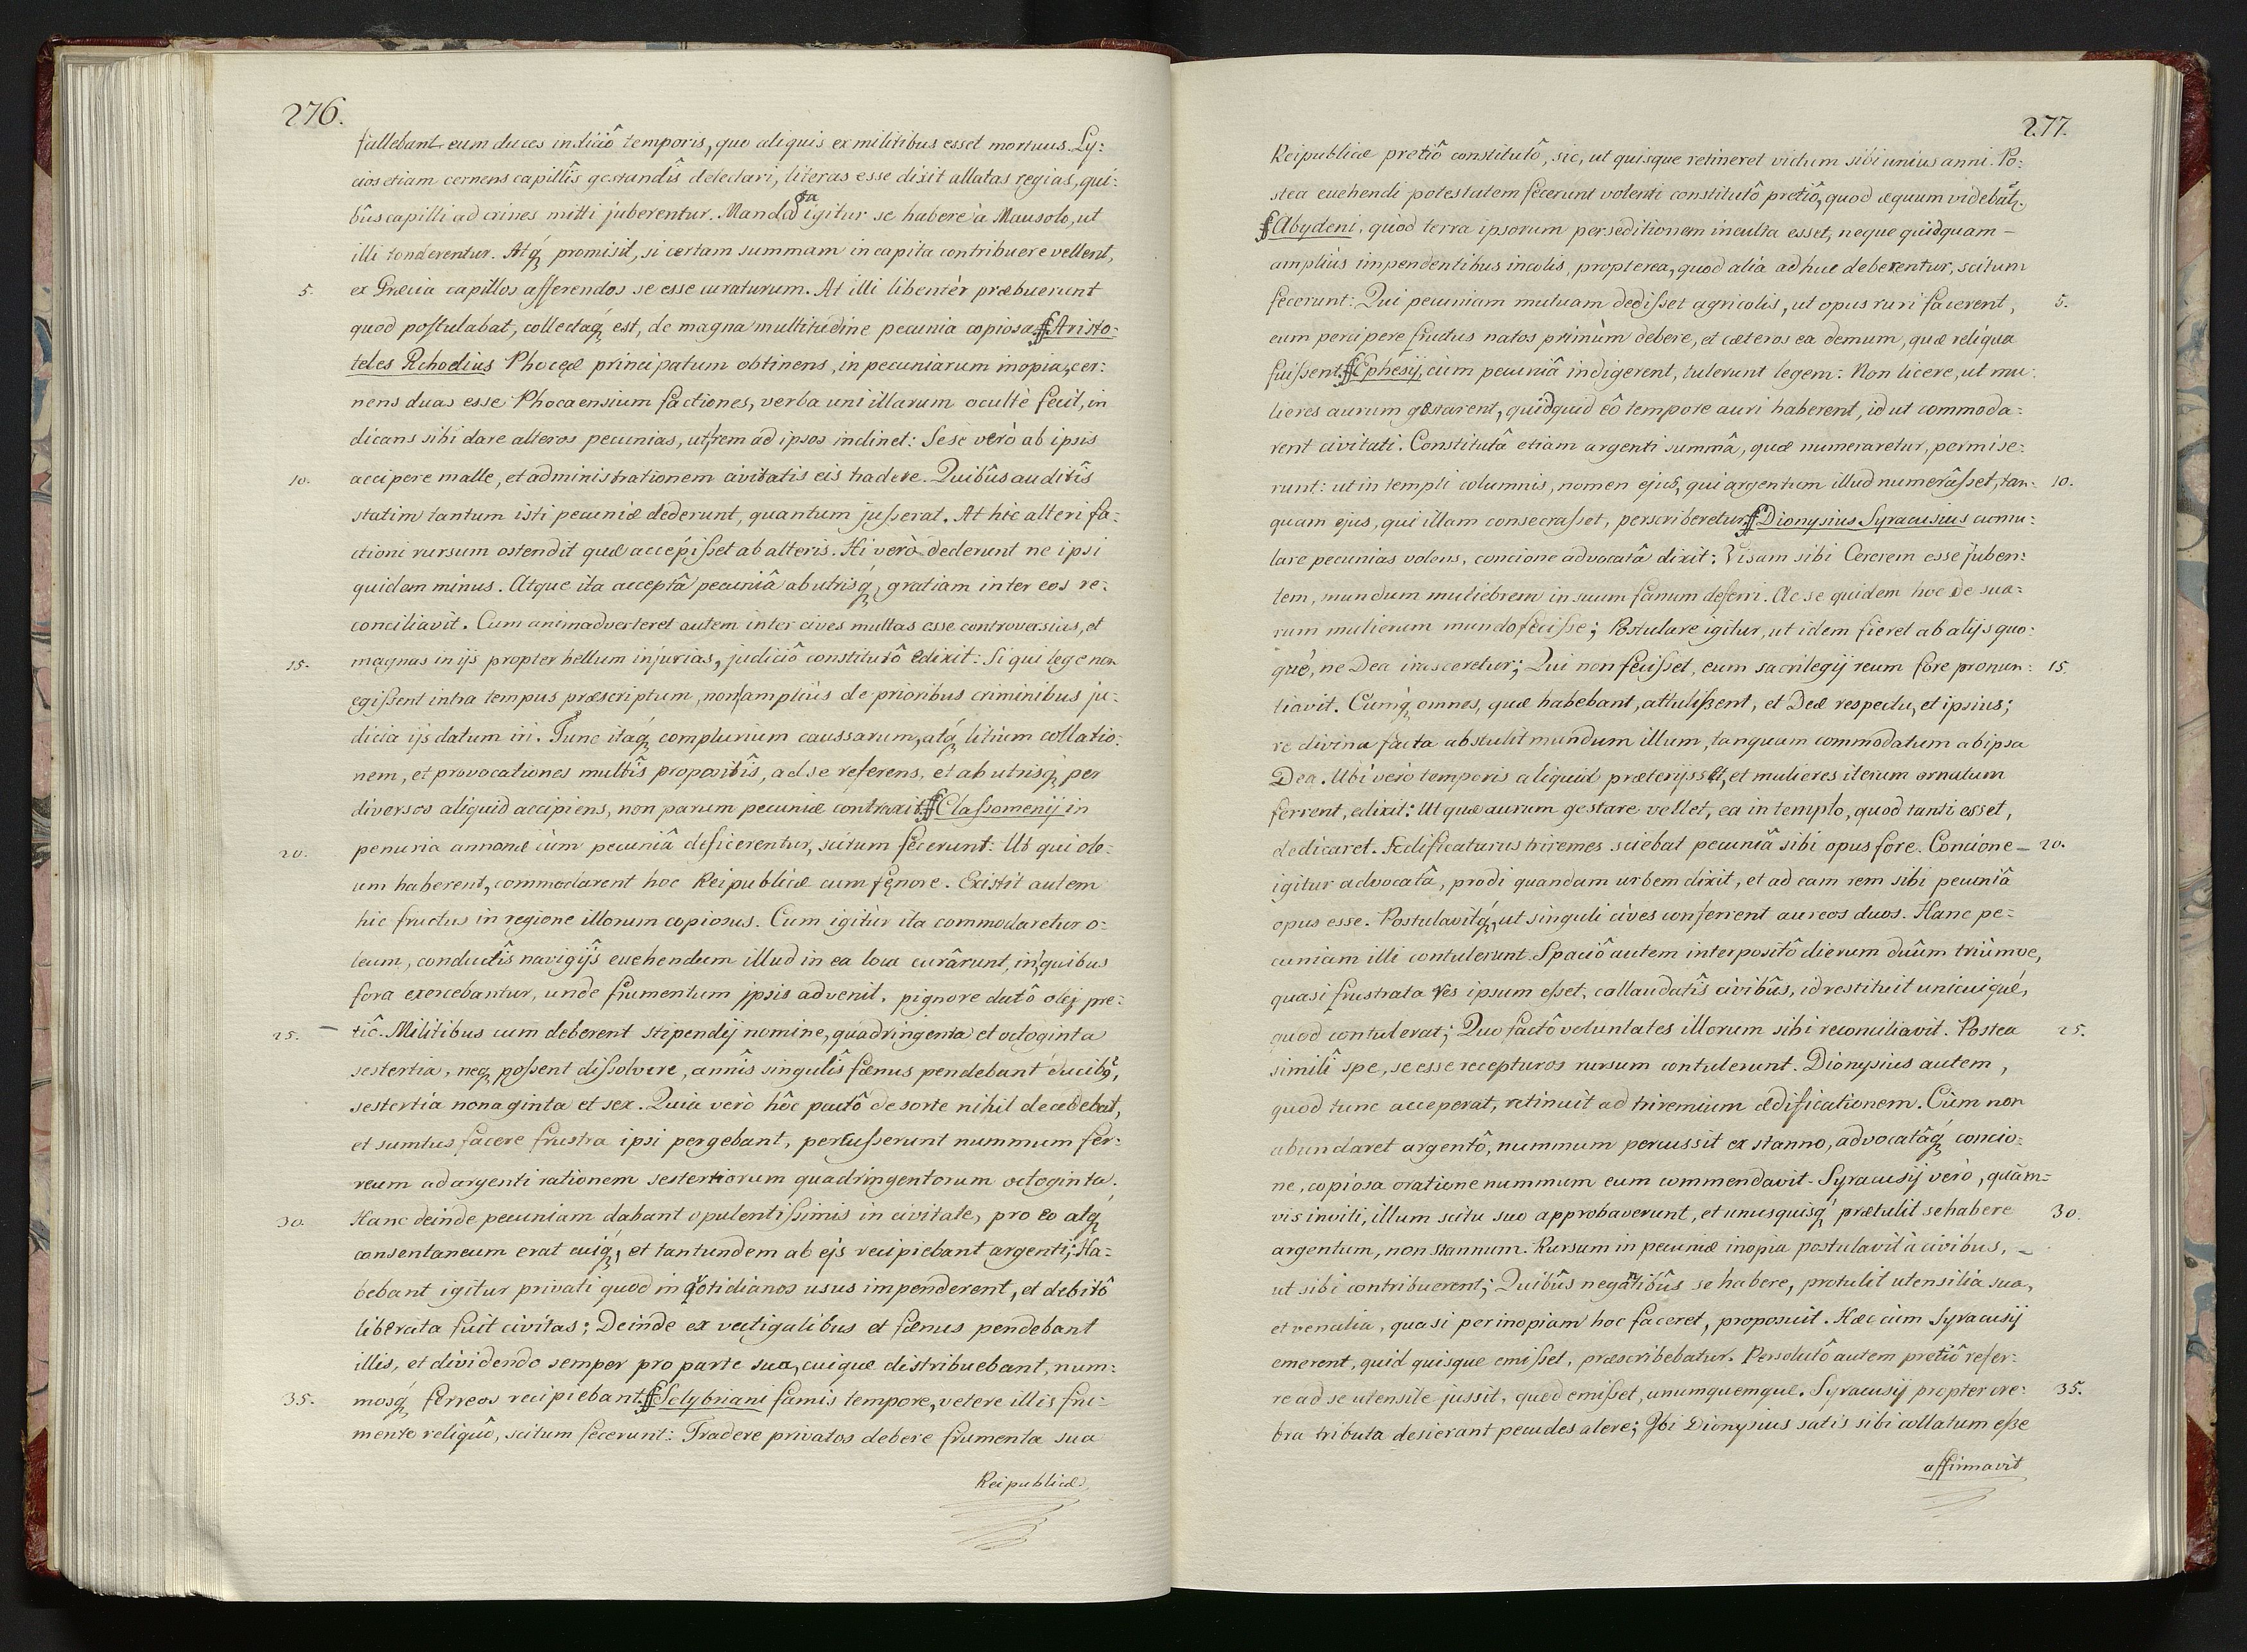 276.
fallebant eum duces indiciô temporis, quo aliquis ex militibus esset mortuus. Ly:
cios etiam cernens capillîs gestandîs delectari, literas esse dixit allatas regias, qui:
bûs capilli ad crines mitti juberentur. Mandata igitur se habere à Mausolo, ut
illi tonderentur. Atq́ꝫ promisit, si certam summam in capita contribuere vellent,
5. ex Græcia capillos afferendos se esse curaturum. At illi libentèr præbuerunt
quod postulabat, collectaq́ꝫ est, de magna multitudine pecunia copiosa. ∬Aristo:
teles Rchodius Phoceæ principatum obtinens, in pecuniarum inopia, cer:
nens duas esse Phocaensium factiones, verba uni illarum occultè fecit, in
dicans sibi dare alteros pecunias, ut rem ad ipsos inclinet: Sese verò ab ipsis
10. accipere malle, et administrationem civitatis eis tradere. Quibûs auditîs
statim tantum isti pecuniæ dederunt, quantum jusserat. At hic alteri fa:
ctioni rursum ostendit quæ accepisset ab alteris. Hi verò dederunt ne ipsi
quidem minus. Atque ita acceptâ pecuniâ ab utrisq́ꝫ, gratiam inter eos re:
conciliavit. Cum animadverteret autem inter cives multas esse controversias, et
15. magnas in ijs propter bellum injurias, judiciô constitutô edixit: Si qui lege non
egissent intra tempus præscriptum, non ampliùs de prioribus criminibus ju:
dicia ijs datum iri. Tunc itáqꝫ complurium caussarum, atq́ꝫ litium collatio:
nem, et provocationes multîs propositîs, ad se referens, et ab utrisq́ꝫ per
diversos aliquid accipiens, non parum pecuniæ contraxit. ∬Classomenij in
20. penuria annonæ cùm pecuniâ deficerentur, scitum fecerunt: Ut qui ole:
um haberent, commodarent hoc Reipublicæ cum fęnore. Existit autem
hic fructus in regione illorum copiosus. Cum igitùr ita commodaretur o:
leum, conductîs navigijs euehendum illud in ea loca curârunt, in quibus
fora exercebantur, unde frumentum ipsis advenit, pignore datô olej pre:
25. tiô. Militibus cum deberent stipendij nomine, quadringenta et octoginta
sestertia, neqꝫ possent dissolvere, annîs singulîs fænus pendebant ducibꝰ,
sestertia nonaginta et sex. Quia verò hôc pactô de sorte nihil decedebat,
et sumtus facere frustra ipsi pergebant, percusserunt nummum fer:
reum ad argenti rationem sestertiorum quadringentorum octoginta.
30. Hanc deinde pecuniam dabant opulentissimis in civitate, pro eo atq́ꝫ
consentaneum erat cuiq́ꝫ, et tantundem ab ejs recipiebant argenti; Ha:
bebant igitur privati quod in quotidianos usus impenderent, et debitô
liberata fuit civitas; Deinde ex vectigalibus et fænus pendebant
illis, et dividendo semper pro parte sua, cuique distribuebant, num:
35. mosq́ꝫ ferreos recipiebant. ∬Selybriani famis tempore, vetere illis fru:
mento reliquô, scitum fecerunt: Tradere privatos debere frumenta sua
Reipublicæ
277.
Reipublicæ pretiô constitutô, sic, ut quisque retineret victum sibi unius anni. Po:
stea euehendi potestatem fecerunt volenti constitutô pretiô, quod æquum videbat̃.
∬Abydeni, quòd terra ipsorum per seditionem inculta esset, neque quidquam –
ampliùs impendentibus incolis, propterea, quod alia adhuc deberentur, scitum
fecerunt: Qui pecuniam mutuam dedisset agricolis, ut opus ruri facerent, 5.
eum percipere fructus natos primùm debere, et cæteros ea demum, quæ reliqua
fuissent. ∬Ephesij, cùm pecuniâ indigerent, tulerunt legem: Non licere, ut mu:
lieres aurum gestarent, quidquid eô tempore auri haberent, id ut commoda:
rent civitati. Constitutâ etiam argenti summâ, quæ numeraretur, permise:
runt: ut in templi columnis, nomen ejus, qui argentum illud numerâsset, tan: 10.
quam ejus, qui illam consecrasset, perscriberetur. ∬Dionysius Syracusius cumu:
lare pecunias volens, concione advocatâ dixit: Visam sibi Cererem esse juben:
tem, mundum muliebrem in suum fanum deferri. Ac se quidem hoc de sua:
rum mulierum mundo fecisse; Postulare igitur, ut idem fieret ab alijs quo:
què, ne Dea irasceretur; Qui non fecisset, eum sacrilegij reum fore pronun: 15.
tiavit. Cùmq́ꝫ omnes, quæ habebant, attulissent, et Deæ respectu, et ipsius;
re divina facta abstulit mundum illum, tanquam commodatum ab ipsa
Dea. Ubi verò temporis aliquid præterijsset, et mulieres iterum ornatum
ferrent, edixit: Ut quæ aurum gestare vellet, ea in templo, quod tanti esset,
dedicaret. Ædificaturus triremes sciebat pecuniâ sibi opus fore. Concione – 20.
igitur advocatâ, prodi quandam urbem dixit, et ad eam rem sibi pecuniâ
opus esse. Postulavitq́ꝫ, ut singuli cives conferrent aureos duos. Hanc pe:
cuniam illi contulerunt. Spaciô autem interpositô dierum duûm triûmve,
quasi frustrata res ipsum esset, collaudatîs civibûs, id restituit unicuiquè,
quod contulerat; Quo factô voluntates illorum sibi reconciliavit. Postea 25.
similî spe, se esse recepturos rursum contulerunt. Dionysius autem,
quod tunc acceperat, retinuit ad triremium ædificationem. Cùm non
abundaret argentô, nummum percussit ex stanno, advocatâq́ꝫ concio:
ne, copiosa oratione nummum eum commendavit. Syracusij verò, quàm:
vis inviti, illum scitu suo approbaverunt, et unusquisq́ꝫ prætulit se habere 30.
argentum, non stannum. Rursum in pecuniæ inopia postulavit à civibus, –
ut sibi contribuerent; Quibûs negantibûs se habere, protulit utensilia sua,
et venalia, quasi per inopiam hoc faceret, proposuit. Hæc cùm Syracusij
emerent, quid quisque emisset, præscribebatur. Persolutô autem pretiô refer:
re ad se utensile jussit, quod emisset, unumquemque. Syracusij propter cre: 35.
bra tributa desierant pecudes alere; Ibi Dionysius satis sibi collatum esse
affirmavit